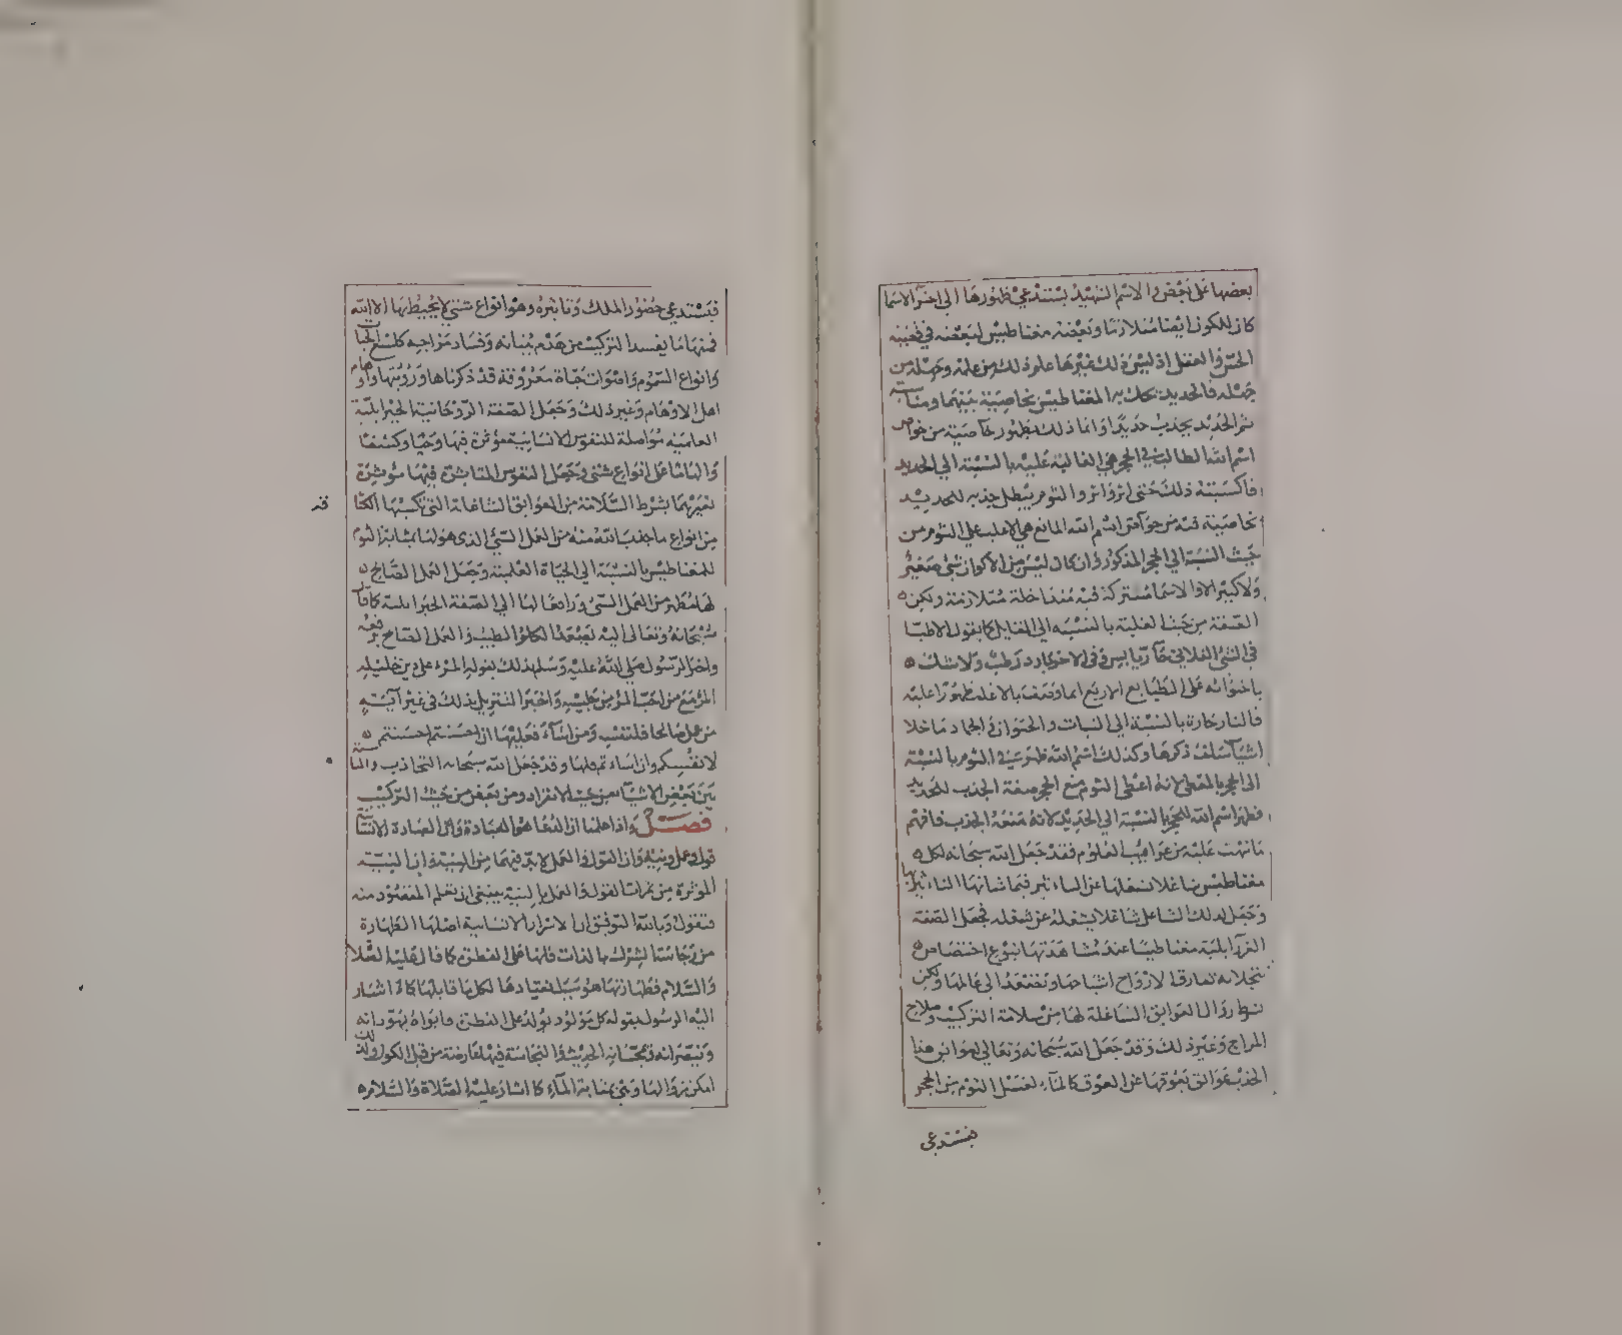 بعضها على بعض والاسم الشهيد يستدعي ظهورها الى اخر الاسما
كان للكون ايضا متلازما وبعضه مغناطيس لبعضه في
الحس والعقل اذ ليس ذلك غيرها علم ذلك من علمه وجهله من
جهله فالحديد تحرك به المغناطيس بخاصية بينهما ومناسبة
ثم الحديد يجذب حديدا وانما ذلك بظهور خاصية من خواص
اسم الله الطالب في الحجر هي الغالبة عليه بالنسبة الى الحديد
فاكسبته ذلك حتى اثر واثر والثوم يبطل جذبه للحديد
بخاصية فيه من خواص اسم الله المانع هي الاغلب على الثوم من
حيث النسبة الى الحجر المذكور وان كان ليس من الاكوان شي صغير
ولا كبير الا والاسما مشتركة فيه متداخلة متلازمة ولكن
الصفة من حيث الغلبة بالنسبة الى القابل كما يقول الاطبا
في الشي الفلاني حار يابس وفي الاخر بارد رطب ولا شك
باحتوائه على الطبايع الاربع انما وصف بالاغلب ظهورا عليه
فالنار حارة بالنسبة الى النبات والحيوان والجماد ما خلا
اشيا سلف ذكرها وكذلك اسم الله ظهر في الثوم بالنسبة
الى الحجر بالمعطي لانه اعطى الثوم منع الحجر صفة الجذب للحديد
فظهر اسم الله للحجر بالنسبة الى الحديد لانه منعه الجذب فافهم
ما نبهت عليه من غرايب العلوم فقد جعل الله سبحانه لكل
مغناطيس شاغلا يشغلها عن التاثير فيما شانها التاثير بها
وجعل لذلك الشاغل شاغلا يشغله عن شغله فجعل الصفة
العزرايلية مغناطيسا عند مشاهدتها بنوع اختصاص
تنجلا به تفارق الارواح اشباحها وتصعد الى عالمها ولكن
بشرط زوال العوايق الشاغلة لها من سلامة التركيب وصلاح
المزاج وغير ذلك وقد جعل الله سبحانه وتعالى لعوايق هذا
الجذب عوايق تعوقها عن العوق كالماء لغسل الثوم من الحجر
فيستدعي
فيستدعي حضور الملك وتاثيره وهو انواع شتى لا يحيط بها الا الله
فمنها ما يفسد التركيب من هدم بنيانه وفساد مزاجه كلسع الحيات
وانواع السموم واصوات معروفة قد ذكرناها ورؤيتها واوهام
اهل الاوهام وغير ذلك وجعل الصفة الروحانية الجبرايلية
العلمية مواصلة للنفوس الانسانية مؤثرة فيها وحيا وكشفا
والهاما على انواع شتى وجعل النفوس المتاثرة فيها مؤثرة
بغيرهما بشرط السلامة من العوايق الشاغلة التي تكسبها
من انواع ما جنبنا الله منه من العمل السيئ الذي هو لنا بمثابة الثوم
للمغناطيس بالنسبة الى الحياة العلمية وجعل العمل الصالح
لها مطهر من العمل السيئ ورافعا لها الى الصفة الجبرايلية كما قال
سبحانه وتعالى اليه يصعد الكلم الطيب والعمل الصالح يرفعه
واخبر الرسول صلى الله عليه وسلم بذلك بقوله المرء على دين خليله
المرء مع من احب المرء من جليسه واخبر التنزيل بذلك في غير آية
من عمل صالحا فلنفسه ومن اساء فعليها ان احسنتم احسنتم
لانفسكم وان اساتم فلها وقد جعل الله سبحانه التجاذب
بين بعض الاشياء من حيث الانفراد ومن بعض من حيث التركيب
فصل واذا علمنا ان الدعا هو العبادة وان العبادة الانسانية
قول وعمل ونية وان القول والعمل لابد فيهما من النية وان النية
المؤثرة من ثمرات القول والعمل بالنية ينبغي ان نعلم المقصود منه
فنقول وبالله التوفيق ان الاسرار الانسانية اصلها الطهارة
من نجاسة الشرك بالذات فانها على الفطرة كما قال عليه الصلاة
والسلام فطهارتها هو سبب انقيادها لكل ما قابلها كما اشار
اليه الرسول بقوله كل مولود يولد على الفطرة فابواه يهودانه
وينصرانه ويمجسانه الحديث والنجاسة فيها عارضة من قبل الكون ولذلك
امكن زوالها وهي بمثابة الماء كما اشار عليه الصلاة والسلام